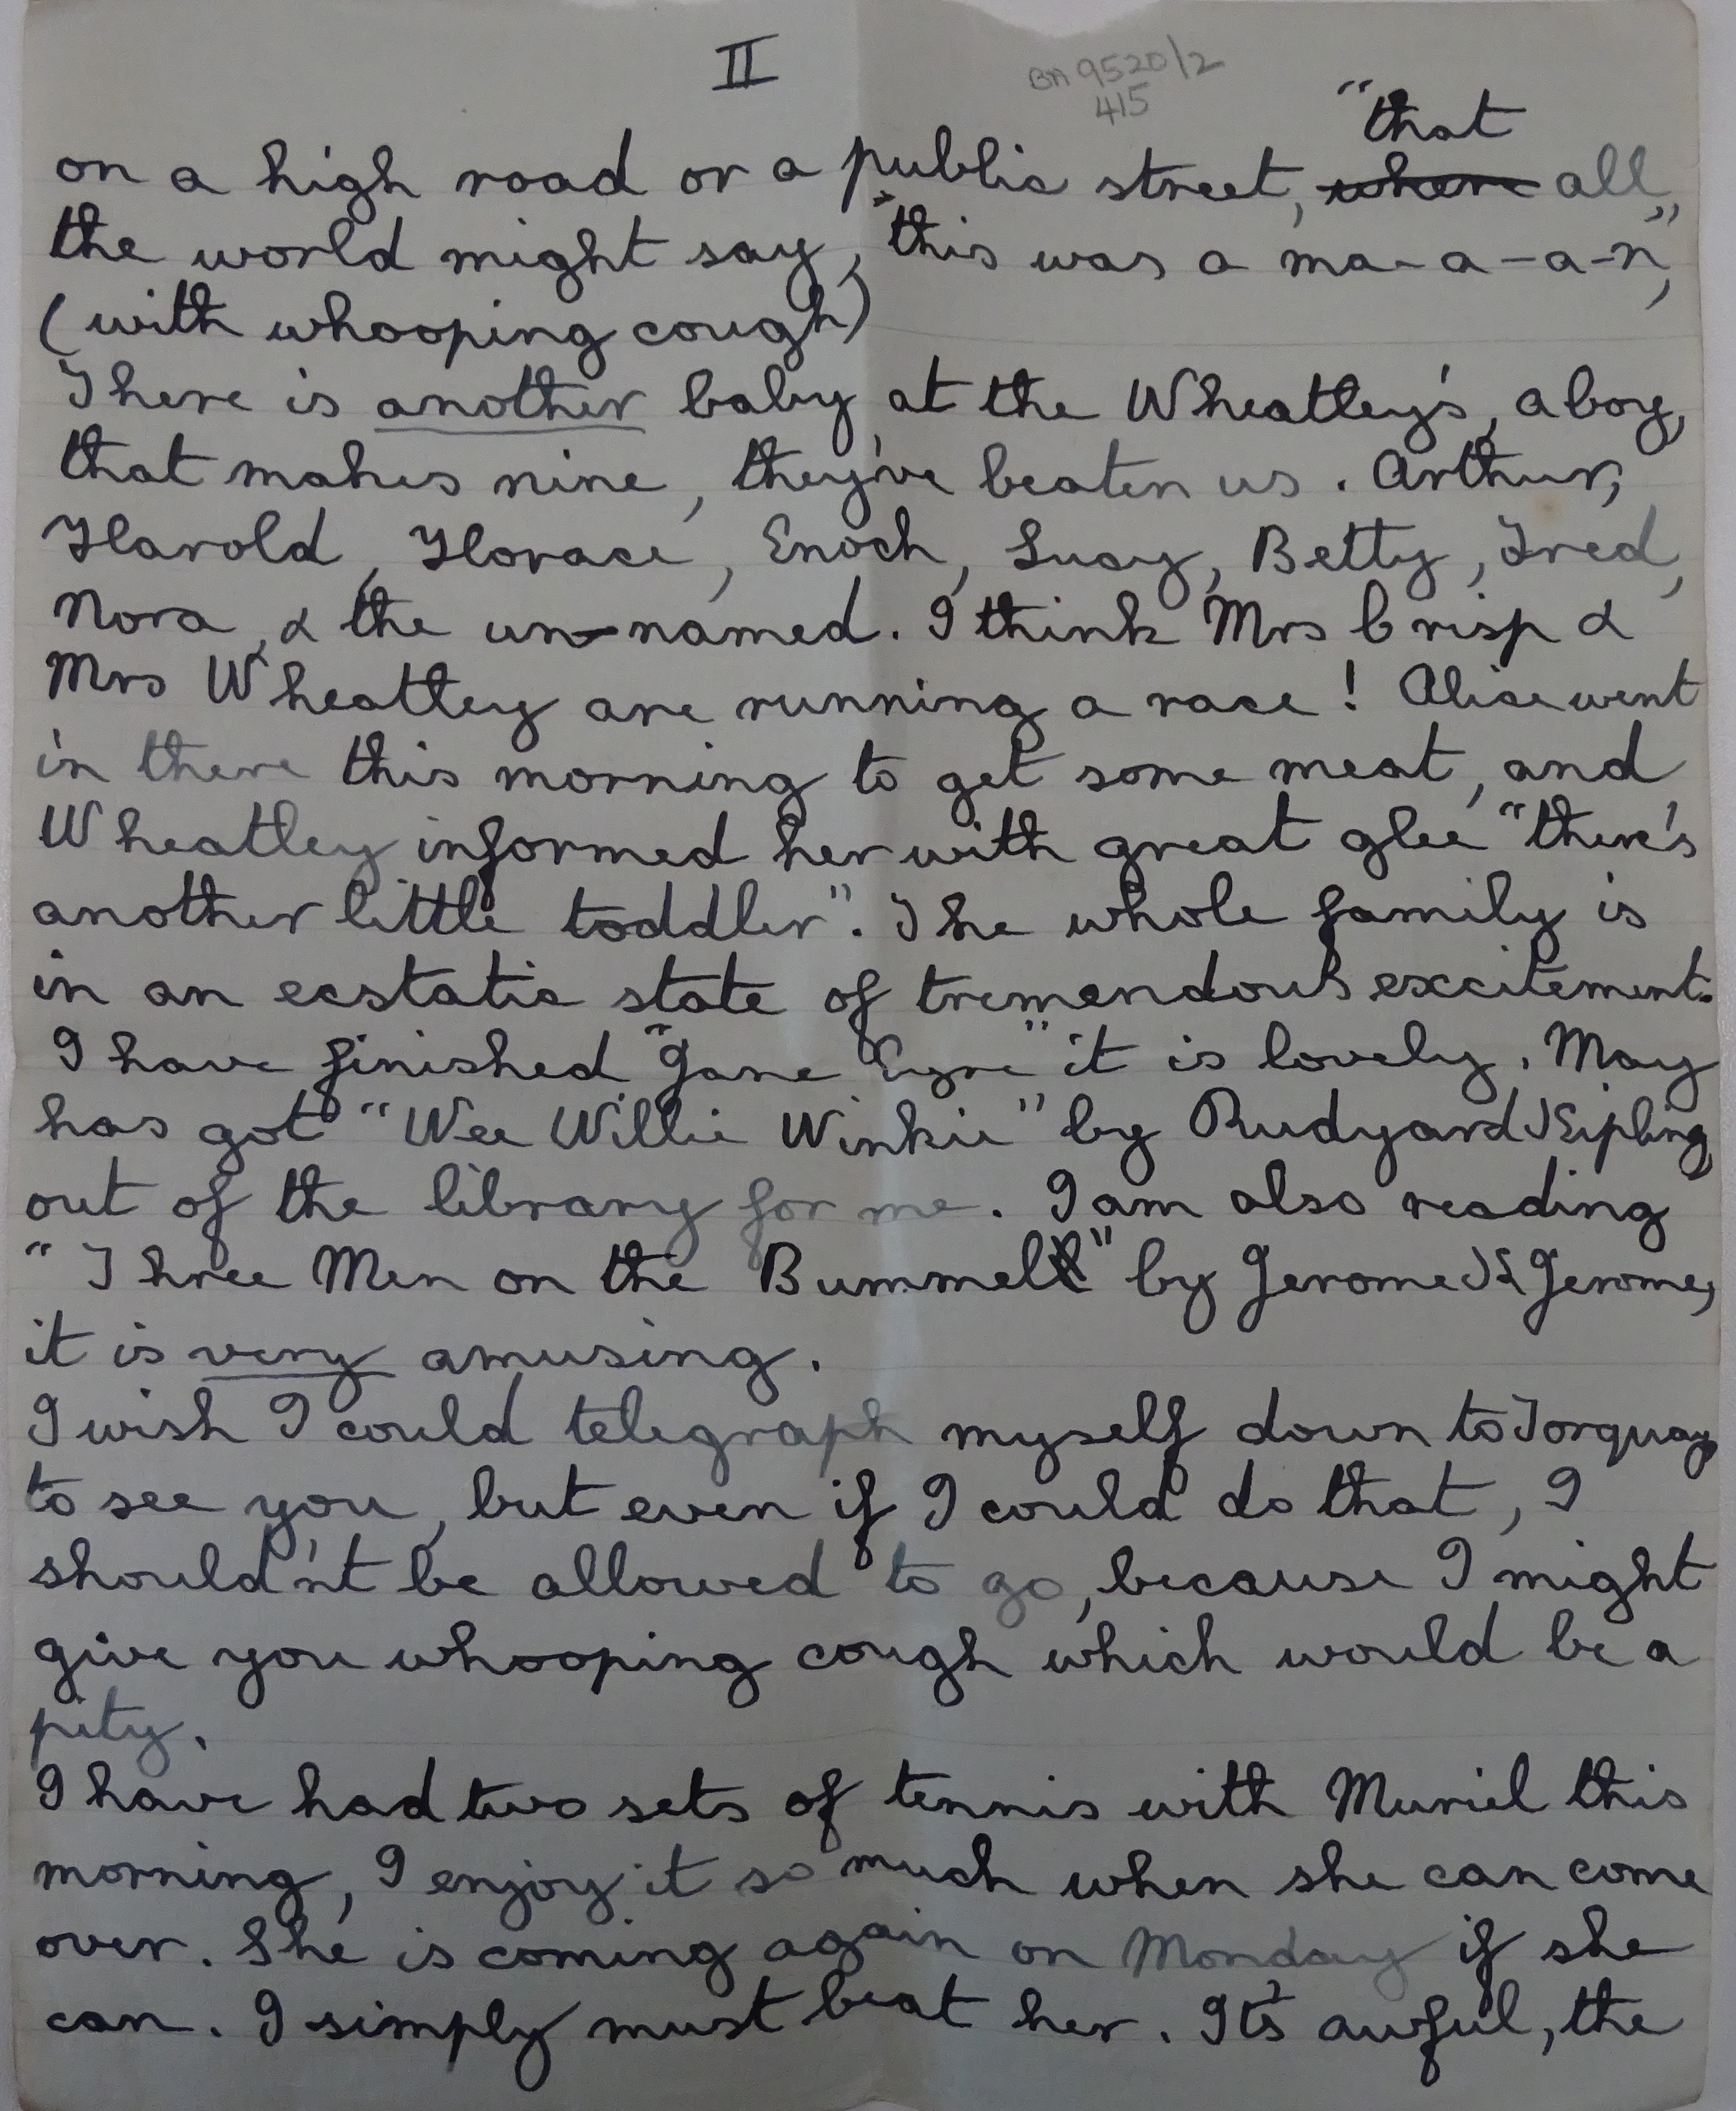 II
BA 9520/2
415
"that
on a high road or a public street, where all
the world might say, "this was a ma-a-a-n,"
(with whooping cough)
There is another baby at the Wheatley's, a boy,
that makes nine, they've beaten us. Arthur,
Harold, Horace, Enoch, Lucy, Betty, Fred,
Nora, & the un-named. I think Mrs Crisp &
Mrs Wheatley are running a race! Alice went
in there this morning to get some meat, and
Wheatley informed her with great glee "there's
another little toddler". The whole family is
in an ecstatic state of tremendous excitement.
I have finished "Jane Eyre" it is lovely. May
has got "Wee Willie Winkie" by Rudyard Kipling,
out of the library for me. I am also reading
"Three Men on the Bummel" by Jerome K Jerome,
it is very amusing.
I wish I could telegraph myself down to Torquay
to see you, but even if I could do that, I
should'nt be allowed to go, because I might
give you whooping cough which would be a
pity.
I have had two sets of tennis with Muriel this
morning, I enjoy it so much when she can come
over. She is coming again on Monday if she
can. I simply must beat her. It's awful, the